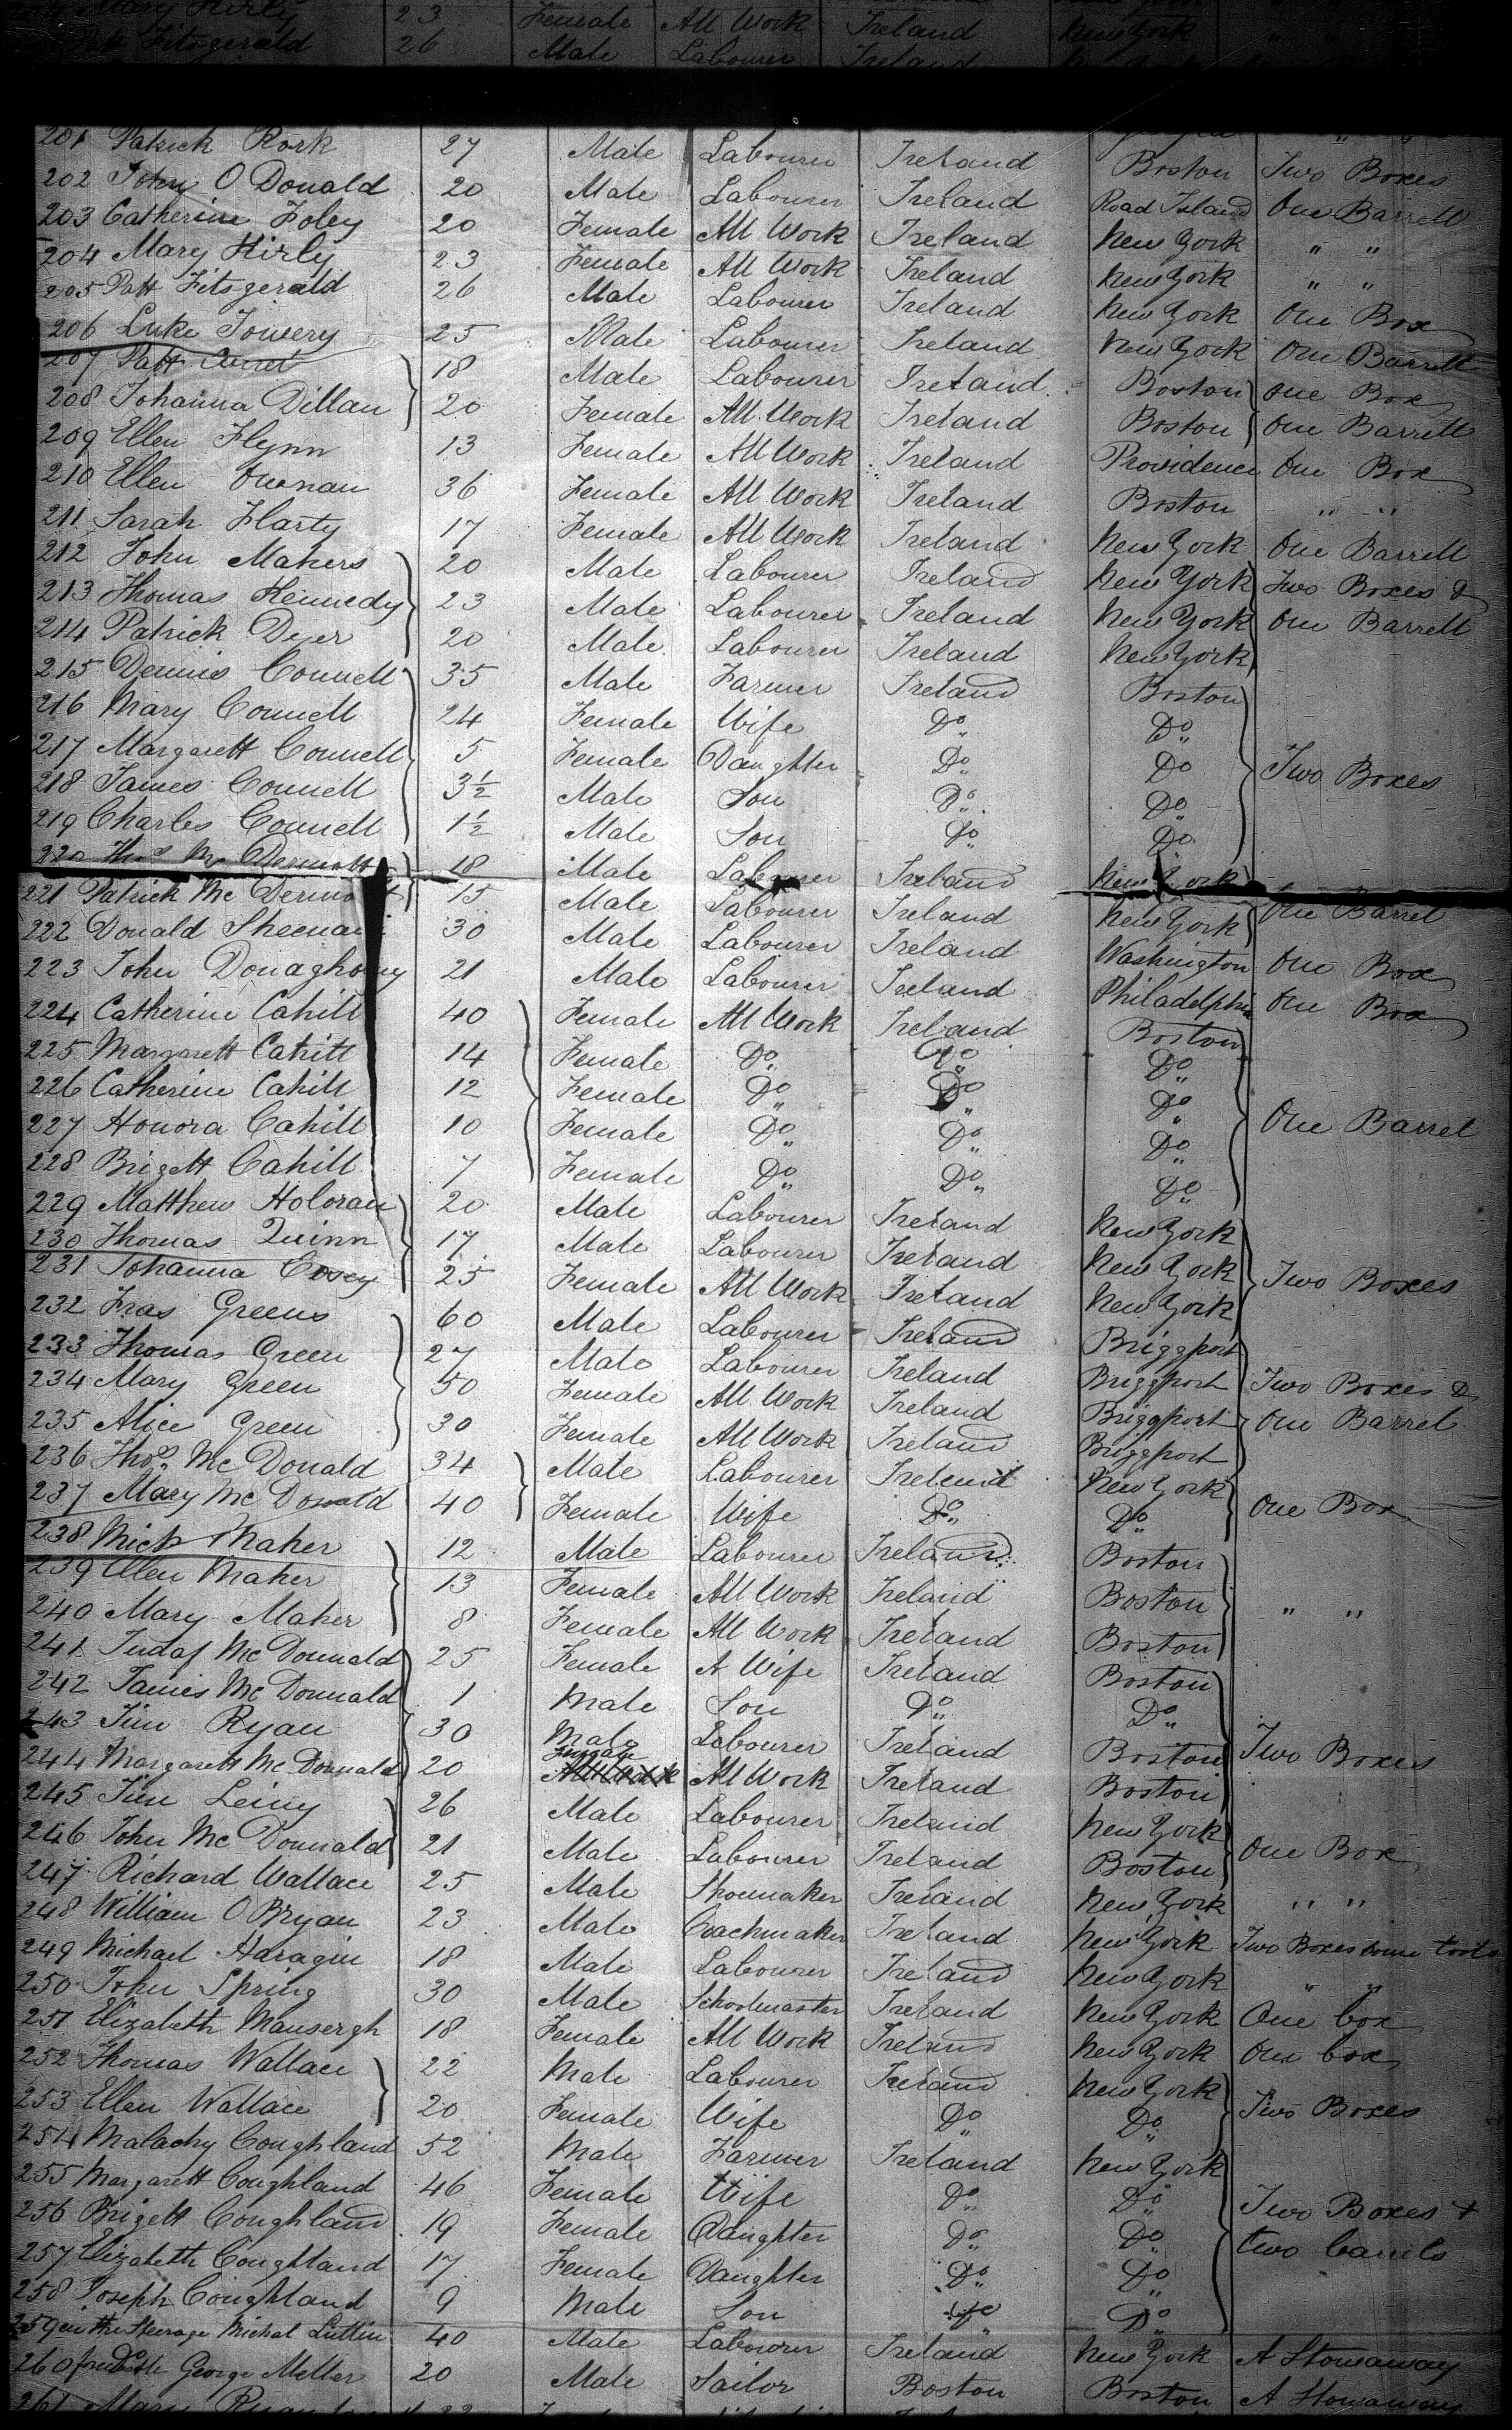 Mary Hirly 23 Female All Work Ireland New York
Patt Fitzgerald 26 Male Labourer Ireland
201 Patrick Rork 27 Male Labourer Ireland Boston Two Boxes
202 John O Donald 20 Male Labourer Ireland Road Island One Barrell
203 Catherine Foley 20 Female All Work Ireland New York " "
204 Mary Hirly 23 Female All Work Ireland New York " "
205 Patt Fitzgerald 26 Male Labourer Ireland New York One Box
206 Luke Towery 25 Male Labourer Ireland New York One Barrell
207 Patt 18 Male Labourer Ireland Boston One Box
208 Johanna Dillan 20 Female All Work Ireland Boston One Barrell
209 Ellen Flynn 13 Female All Work Ireland Providence One Box
210 Ellen 36 Female All Work Ireland Boston " "
211 Sarah Flarty 17 Female All Work Ireland New York One Barrell
212 John Mahers 20 Male Labourer Ireland New York Two Boxes &
213 Thomas Kennedy 23 Male Labourer Ireland New York One Barrell
214 Patrick Dyer 20 Male Labourer Ireland New York
215 Dennis Connell 35 Male Farmer Ireland Boston
216 Mary Connell 24 Female Wife Do Do
217 Margarett Connell 5 Female Daughter Do Do Two Boxes
218 James Connell 3½ Male Son Do Do
219 Charles Connell 1½ Male Son Do Do
220 Thos Mc Dermott 18 Male Labourer Ireland New York
221 Patrick Mc Dermott 15 Male Labourer Ireland New York One Barrel
222 Donald Sheenan 30 Male Labourer Ireland Washington One Box
223 John Donaghowy 21 Male Labourer Ireland Philadelphia One Box
224 Catherine Cahill 40 Female All Work Ireland Boston
225 Margarett Cahill 14 Female Do Do Do
226 Catherine Cahill 12 Female Do Do Do
227 Honora Cahill 10 Female Do Do Do One Barrel
228 Brigett Cahill 7 Female Do Do Do
229 Matthew Holoran 20 Male Labourer Ireland New York
230 Thomas Quinn 17 Male Labourer Ireland New York
231 Johanna Cosey 25 Female All Work Ireland New York Two Boxes
232 Fras Greens 60 Male Labourer Ireland Briggport
233 Thomas Green 27 Male Labourer Ireland Briggport Two Boxes &
234 Mary Green 50 Female All Work Ireland Briggport One Barrel
235 Alice Green 30 Female All Work Ireland Briggport
236 Thos. Mc Donald 34 Male Labourer Ireland New York
237 Mary Mc Donald 40 Female Wife Do Do One Box
238 Mick Maher 12 Male Labourer Ireland Boston
239 Ellen Maher 13 Female All Work Ireland Boston
240 Mary Maher 8 Female All Work Ireland Boston " "
241 Mc Donnald 25 Female A Wife Ireland Boston
242 James Mc Donnald 1 Male Son Do Do
243 Tim Ryan 30 Male Labourer Ireland Boston Two Boxes
244 Margarett Mc Donnald 20 Female All Work Ireland Boston
245 Tim Leiny 26 Male Labourer Ireland New York
246 John Mc Donnald 21 Male Labourer Ireland Boston One Box
247 Richard Wallace 25 Male Shoemaker Ireland New York " "
248 William O Bryan 23 Male Coachmaker Ireland New York Two Boxes some tools
249 Michael Haragin 18 Male Labourer Ireland New York " "
250 John Spring 30 Male Schoolmaster Ireland New York One box
251 Elizabeth Mansergh 18 Female All Work Ireland New York One box
252 Thomas Wallace 22 Male Labourer Ireland New York
253 Ellen Wallace 20 Female Wife Do Do Two Boxes
254 Malachy Coughland 52 Male Farmer Ireland New York
255 Margarett Coughland 46 Female Wife Do Do Two Boxes +
256 Brigett Coughland 19 Female Daughter Do Do two barrils
257 Elizabeth Coughland 17 Female Daughter Do Do
258 Joseph Coughland 9 Male Son Do Do
259 in the Steerage Michal Lullin 40 Male Labourer Ireland New York A Stowaway
260 George Meller 20 Male Sailor Boston Boston A Stowaway
261 Mary Ryan A Stowaway